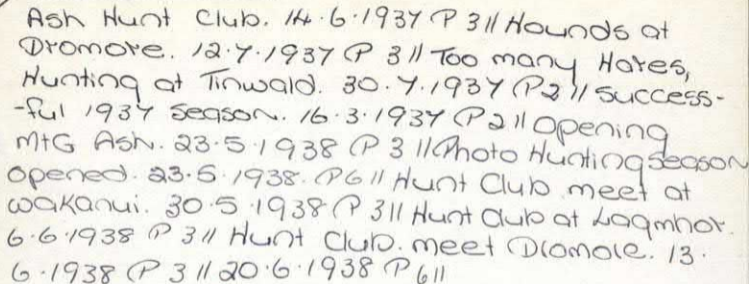 Ash Hunt Club. 14.6.1937 P 3 // Hounds at
Dromore. 12.7.1937 P 3 // Too many Hares,
Hunting at Tinwald. 30.7.1937 P2 // Success-
-ful 1937 season. 16.3.1937 P2 // Opening
MtG Ash. 23.5.1938 P 3 // Photo Hunting season
opened. 23.5.1938. P6 // Hunt Club meet at
Wakanui. 30.5.1938 P 3 // Hunt Club at Lagmhor.
6.6.1938 P 3 // Hunt Club. meet Dromore. 13.
6.1938 P 3 // 20.6.1938 P 6 //